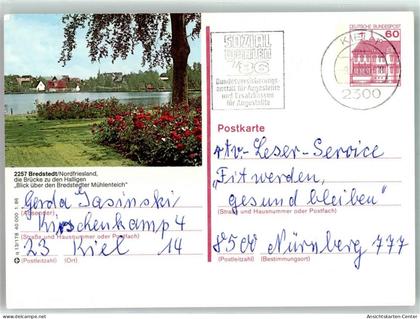 SOZIAL
WAHLEN
'86
Bundesversicherungs-
anstalt für Angestellte
und Ersatzkassen
für Angestellte
KIEL 1
2300
DEUTSCHE BUNDESPOST
60
Postkarte
2257 Bredstedt/Nordfriesland,
die Brücke zu den Halligen
„Blick über den Bredstedter Mühlenteich"
Gerda Gasinski
(Absender)
Kirschenkamp 4
(Straße und Hausnummer oder Postfach)
23 Kiel 14
(Postleitzahl) (Ort)
rtv-Leser-Service
„Fit werden,
gesund bleiben"
(Straße und Hausnummer oder Postfach)
8500 Nürnberg 777
(Postleitzahl) (Bestimmungsort)
www.delcampe.net
Ansichtskarten-Center